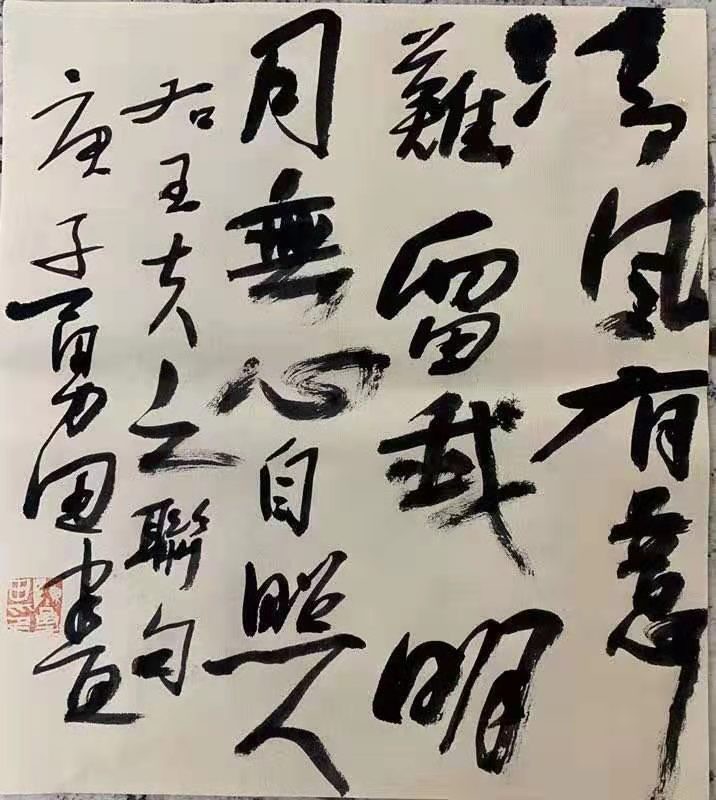 清风有意
難留我明
月無心自照人
右王夫之聯句
庚子夏勇田書